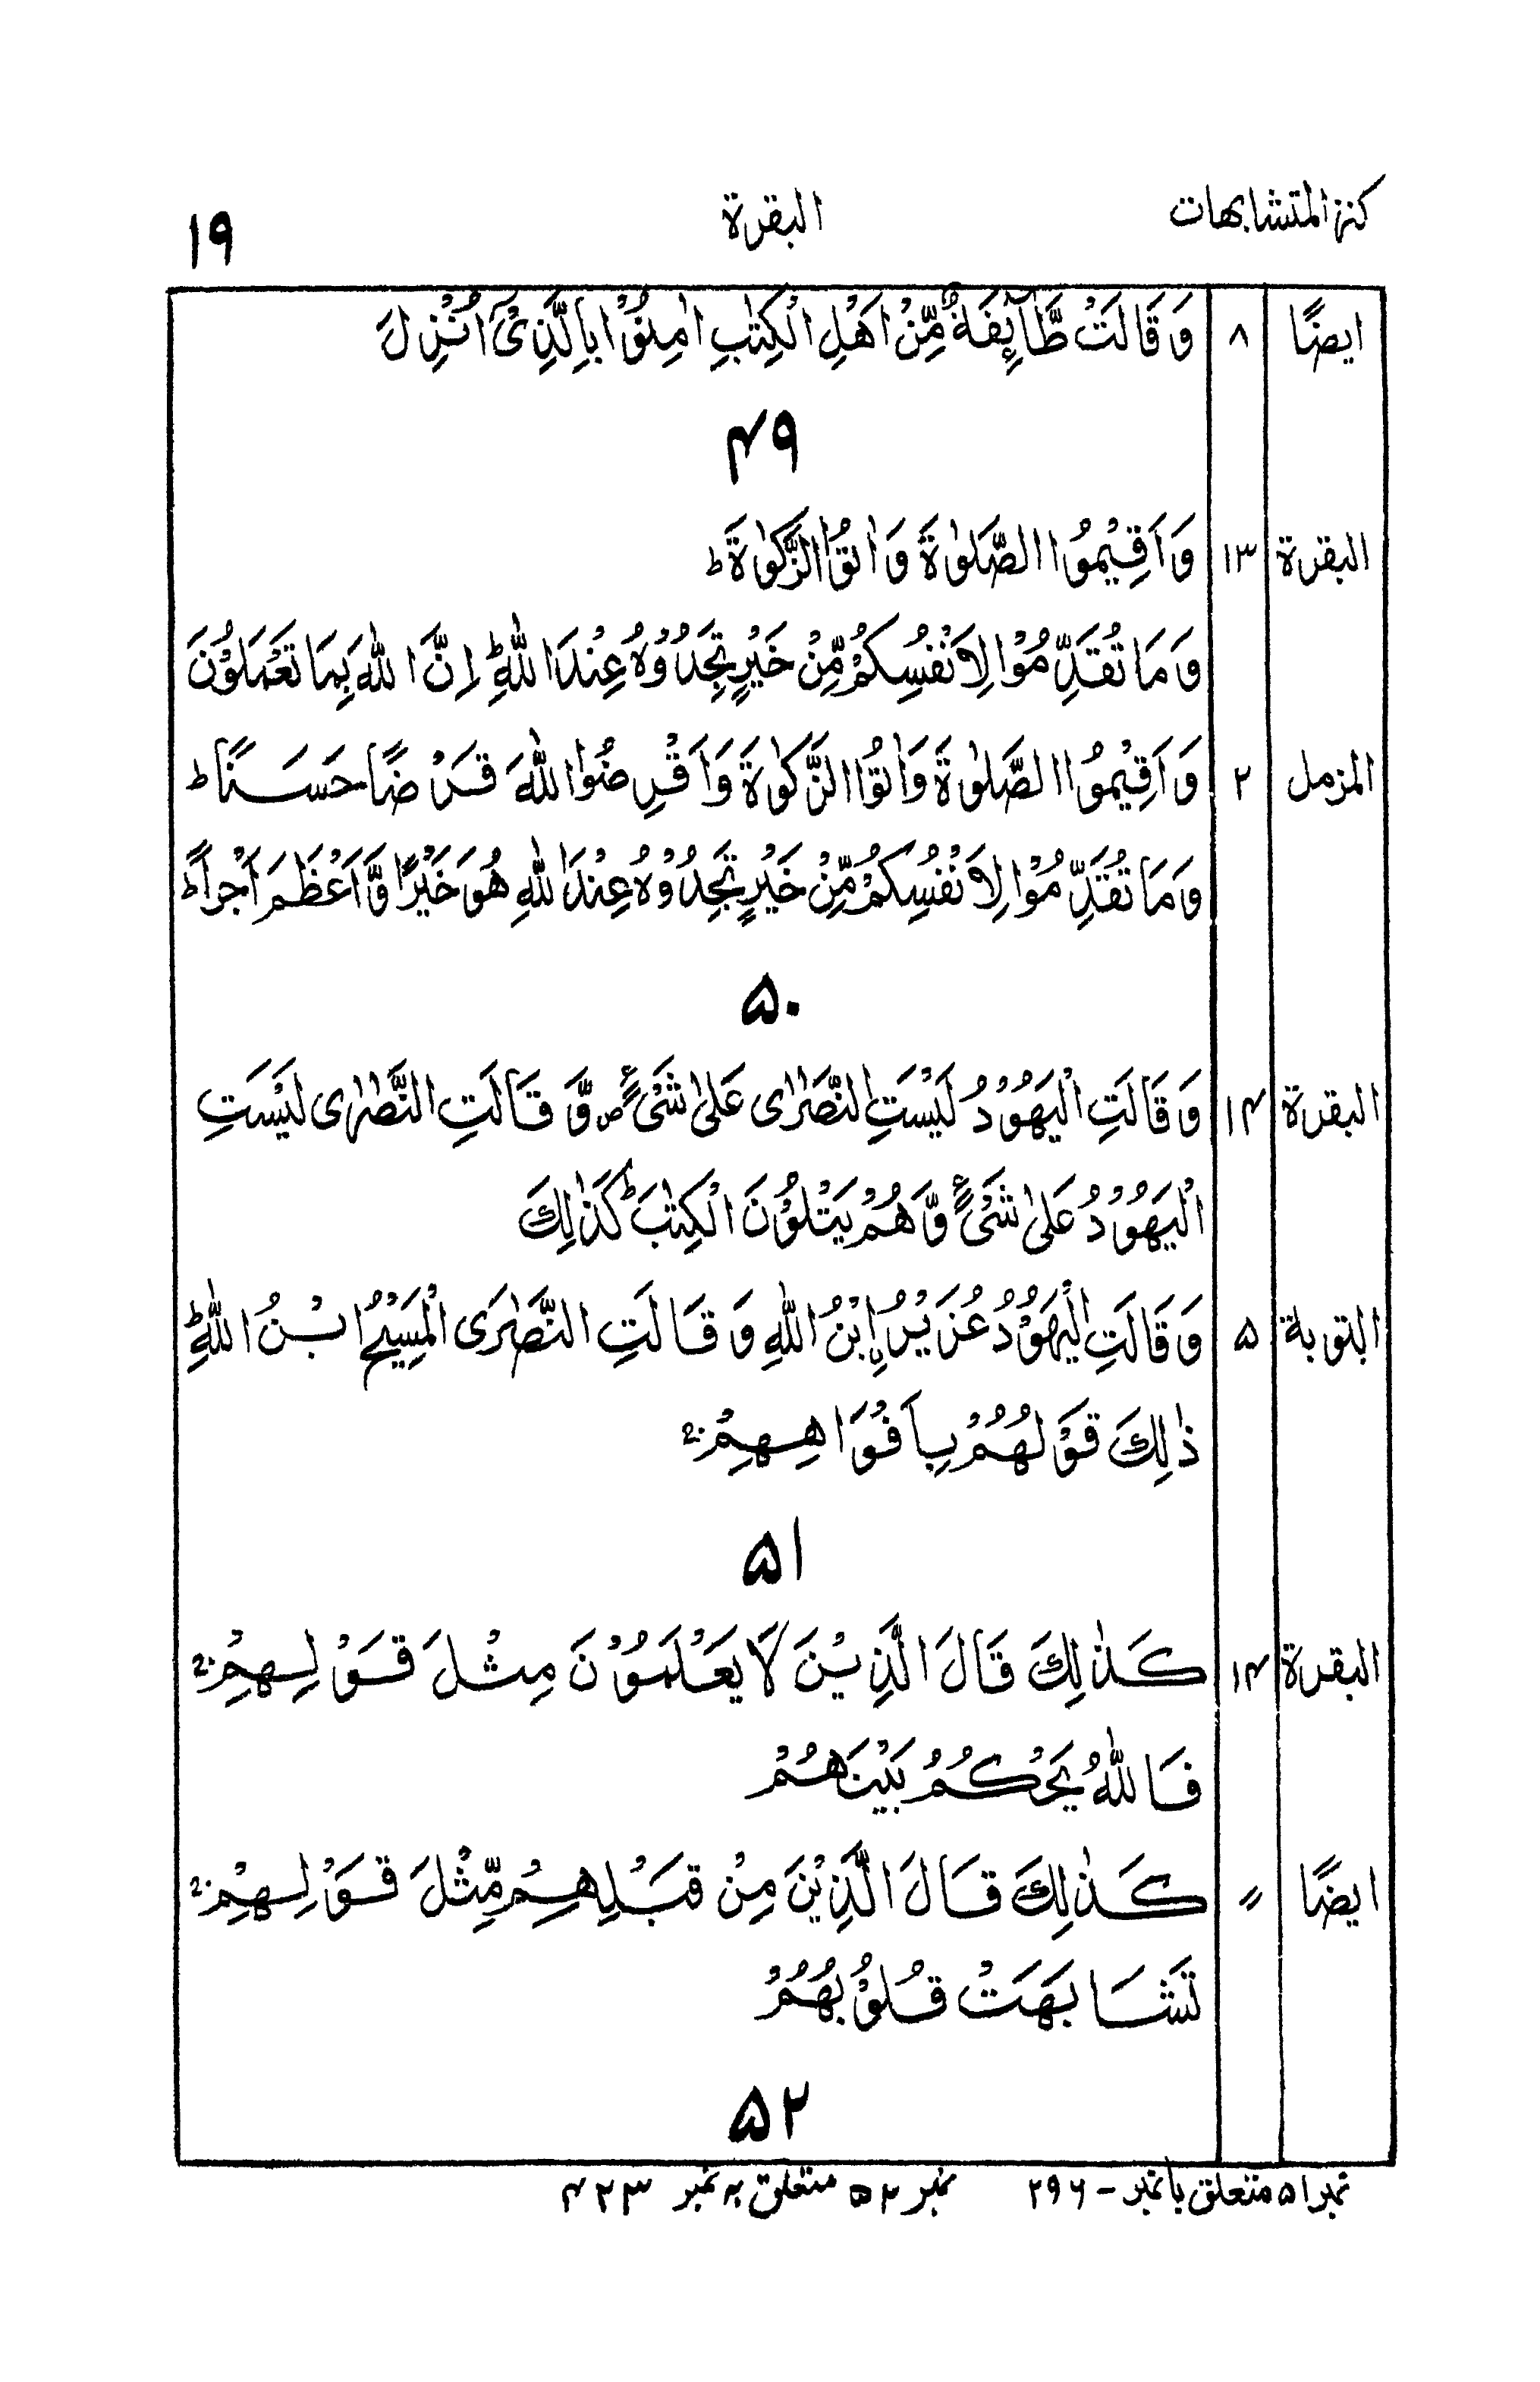 کنز المتشابهات البقرة ۱۹
ایضًا ۸ وَ قَالَتْ طَّآئِفَةٌ مِّنْ اَهْلِ الْكِتٰبِ اٰمِنُوْا بِالَّذِیْۤ اُنْزِلَ
۴۹
البقرة ۱۳ وَ اَقِیْمُوا الصَّلٰوةَ وَ اٰتُوا الزَّكٰوةَ ؕ
وَ مَا تُقَدِّمُوْا لِاَنْفُسِكُمْ مِّنْ خَیْرٍ تَجِدُوْهُ عِنْدَ اللّٰهِ ؕ اِنَّ اللّٰهَ بِمَا تَعْمَلُوْنَ
المزمل ۲ وَ اَقِیْمُوا الصَّلٰوةَ وَ اٰتُوا الزَّكٰوةَ وَ اَقْرِضُوا اللّٰهَ قَرْضًا حَسَنًا ؕ
وَ مَا تُقَدِّمُوْا لِاَنْفُسِكُمْ مِّنْ خَیْرٍ تَجِدُوْهُ عِنْدَ اللّٰهِ هُوَ خَیْرًا وَّ اَعْظَمَ اَجْرًا ؕ
۵۰
البقرة ۱۴ وَ قَالَتِ الْیَهُوْدُ لَیْسَتِ النَّصٰرٰی عَلٰی شَیْءٍ ۪ وَّ قَالَتِ النَّصٰرٰی لَیْسَتِ
الْیَهُوْدُ عَلٰی شَیْءٍ وَّ هُمْ یَتْلُوْنَ الْكِتٰبَ ؕ كَذٰلِكَ
التوبة ۵ وَ قَالَتِ الْیَهُوْدُ عُزَیْرُ ِ۟ابْنُ اللّٰهِ وَ قَالَتِ النَّصٰرَی الْمَسِیْحُ ابْنُ اللّٰهِ ؕ
ذٰلِكَ قَوْلُهُمْ بِاَفْوَاهِهِمْ ۚ
۵۱
البقرة ۱۴ كَذٰلِكَ قَالَ الَّذِیْنَ لَا یَعْلَمُوْنَ مِثْلَ قَوْلِهِمْ ۚ
فَاللّٰهُ یَحْكُمُ بَیْنَهُمْ
ایضًا // كَذٰلِكَ قَالَ الَّذِیْنَ مِنْ قَبْلِهِمْ مِّثْلَ قَوْلِهِمْ ۚ
تَشَابَهَتْ قُلُوْبُهُمْ
۵۲
نمبر ۵۱ متعلق با نمبر - ۲۹۶ نمبر ۵۲ متعلق بہ نمبر ۴۲۳